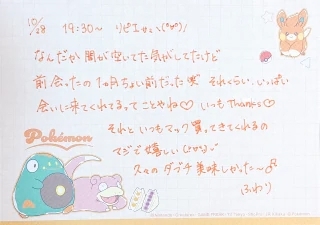 10/28 19:30～ リピエサミヽ(°∀°)ﾉ
なんだか間が空いてた気がしてたけど
前会ったの1ヵ月ちょい前だった笑 それくらい、いっぱい
会いに来てくれてるってことやね♡ いつもThanks♡
それといつもマック買ってきてくれるの
マジで嬉しい
久々のダブチ美味しかった～
ふわり
Pokémon